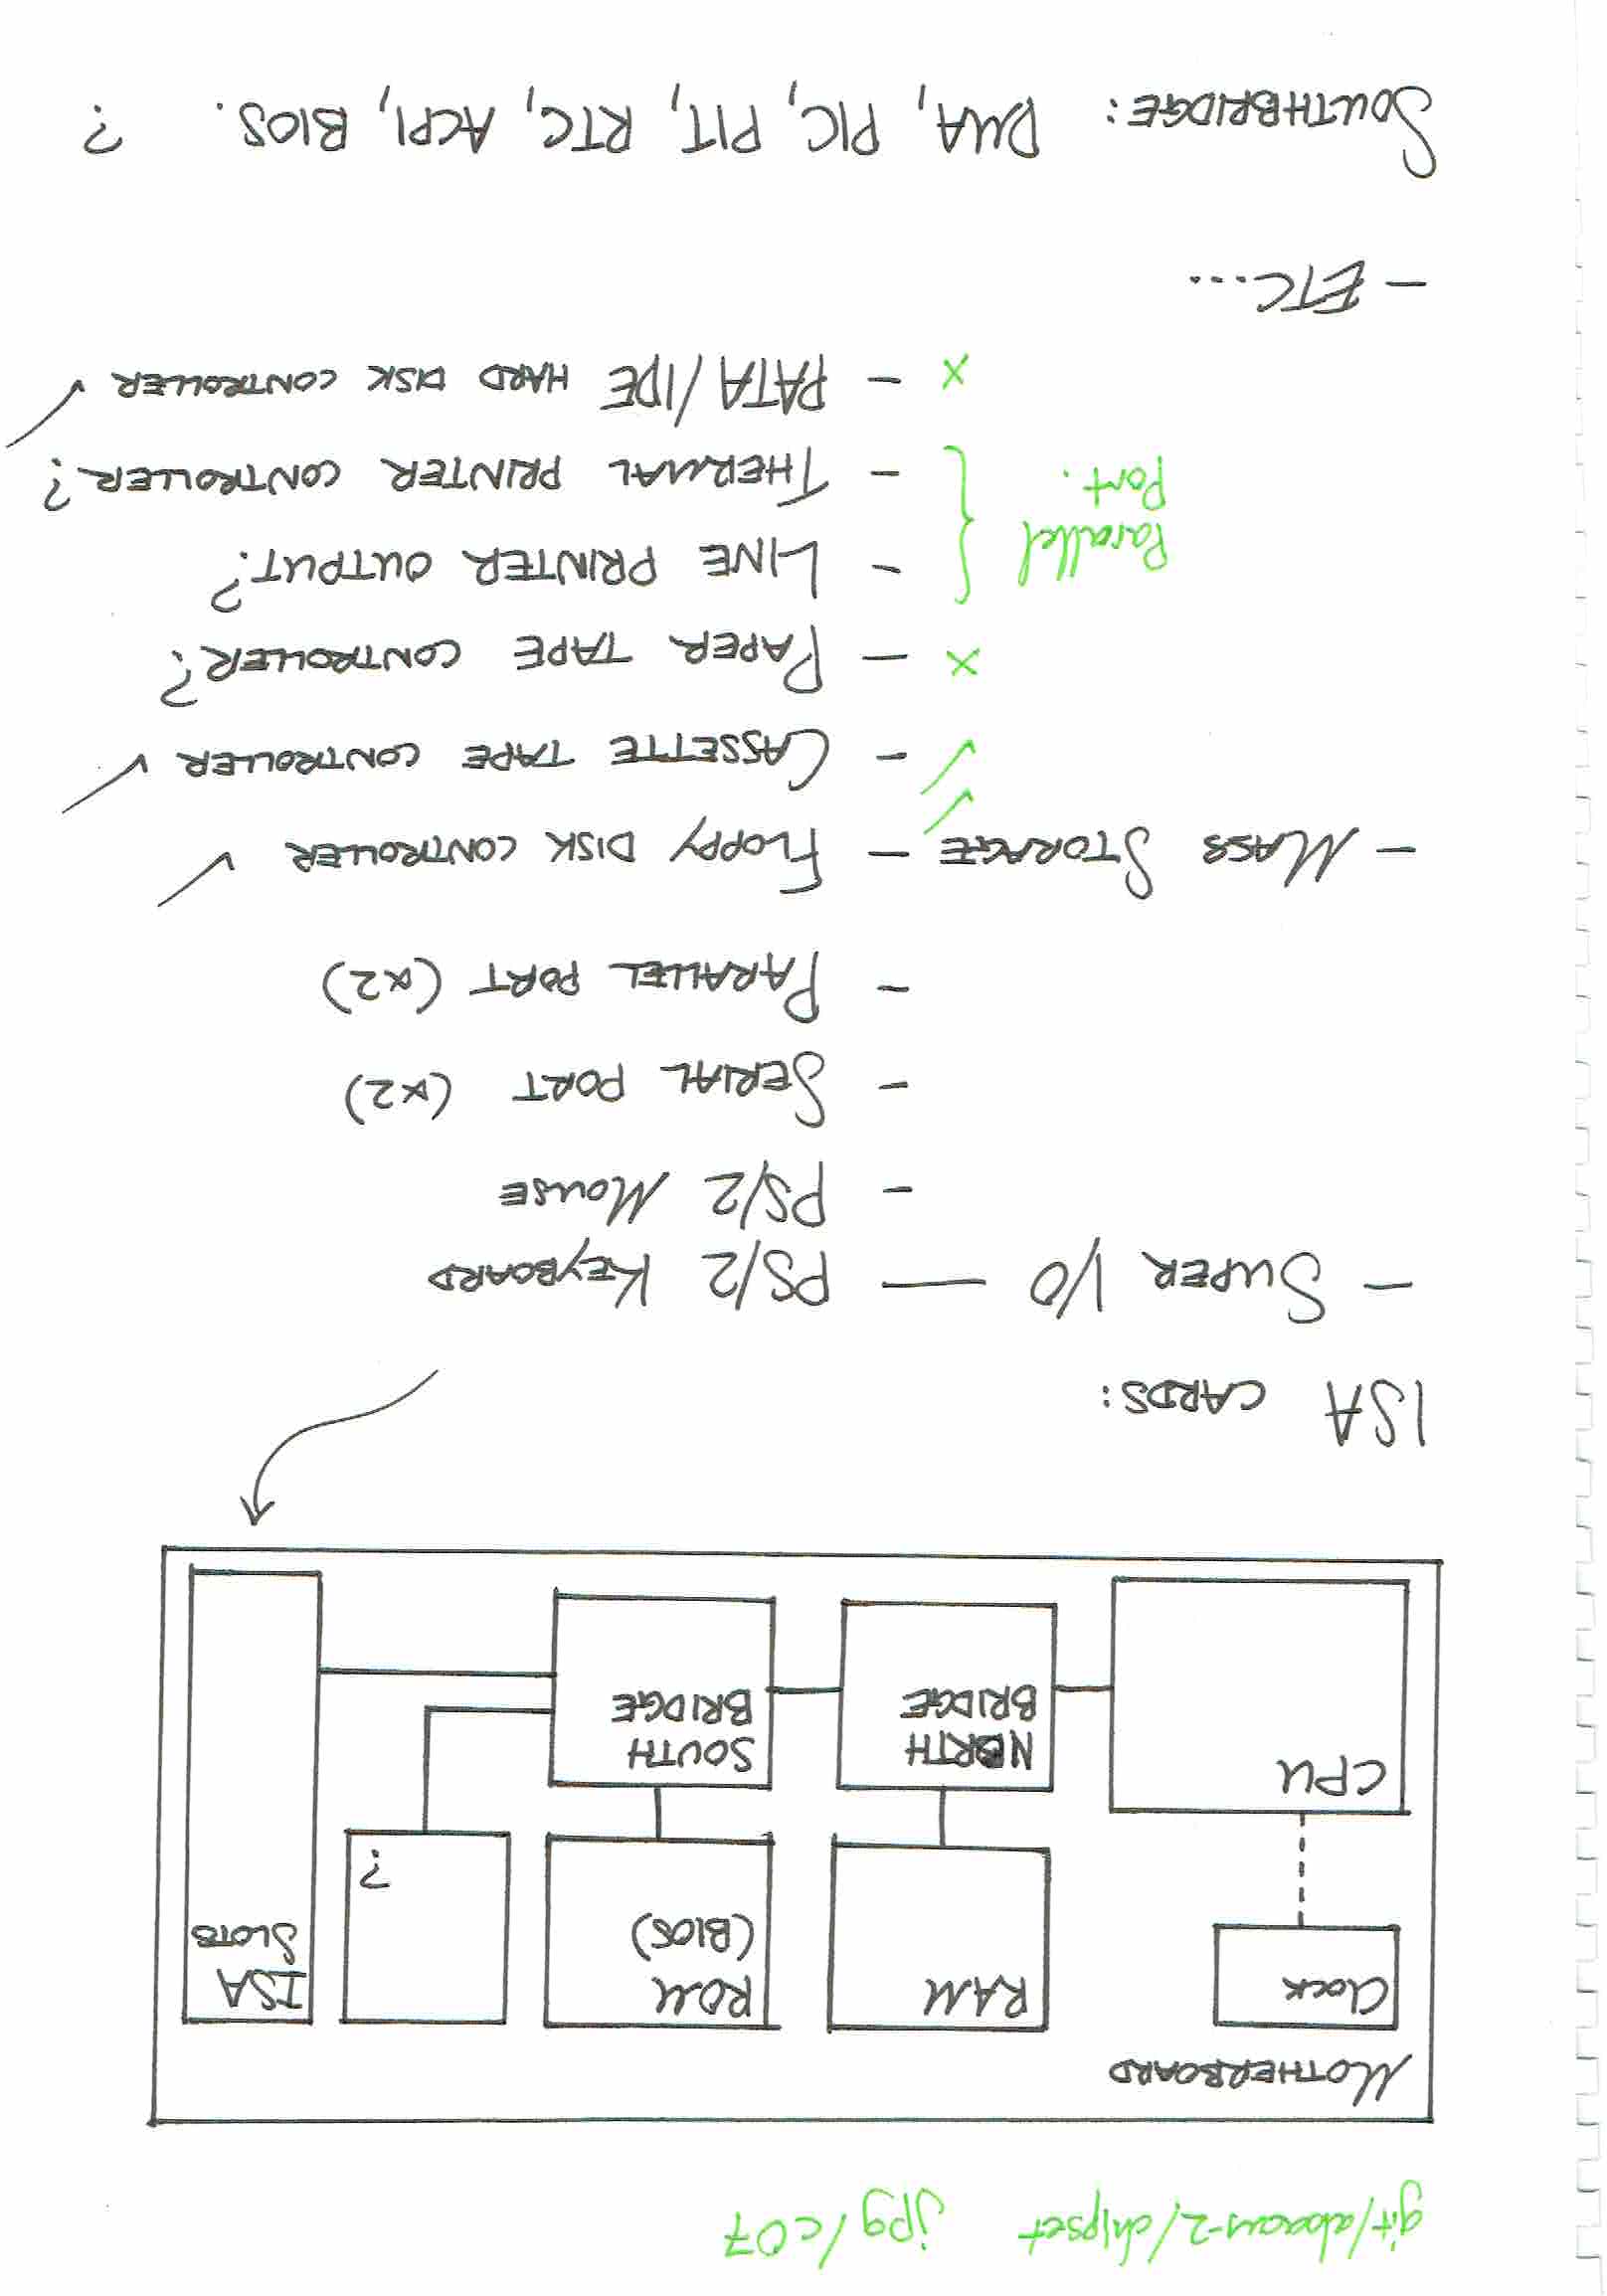 git/abacus-2/chipset jpg/c07
MOTHERBOARD
Clock
RAM
ROM
(BIOS)
?
ISA
SLOTS
CPU
NORTH
BRIDGE
SOUTH
BRIDGE
ISA CARDS:
- SUPER I/O — PS/2 KEYBOARD
- PS/2 MOUSE
- SERIAL PORT (x2)
- PARALLEL PORT (x2)
- MASS STORAGE - FLOPPY DISK CONTROLLER ✓
✓
✓ - CASSETTE TAPE CONTROLLER ✓
x - PAPER TAPE CONTROLLER?
- LINE PRINTER OUTPUT?
Parallel
Port.
- THERMAL PRINTER CONTROLLER?
x - PATA/IDE HARD DISK CONTROLLER ✓
- ETC...
SOUTHBRIDGE: DMA, PIC, PIT, RTC, ACPI, BIOS. ?